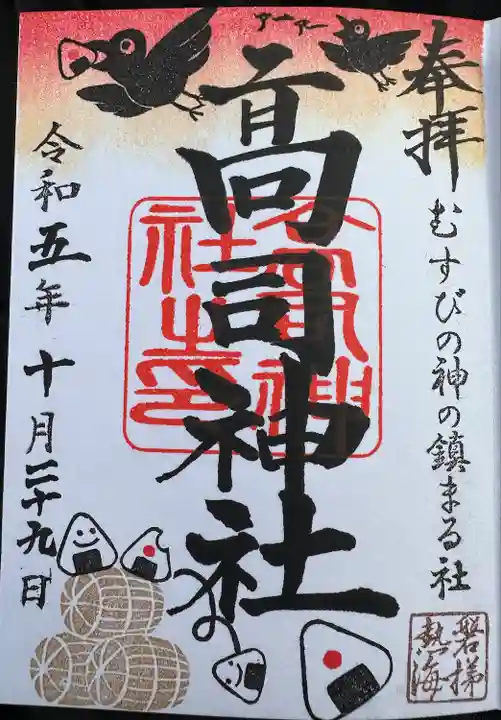 奉拝
むすびの神の鎮まる社
磐梯
熱海
高司神社
アーアー
令和五年十月二十九日